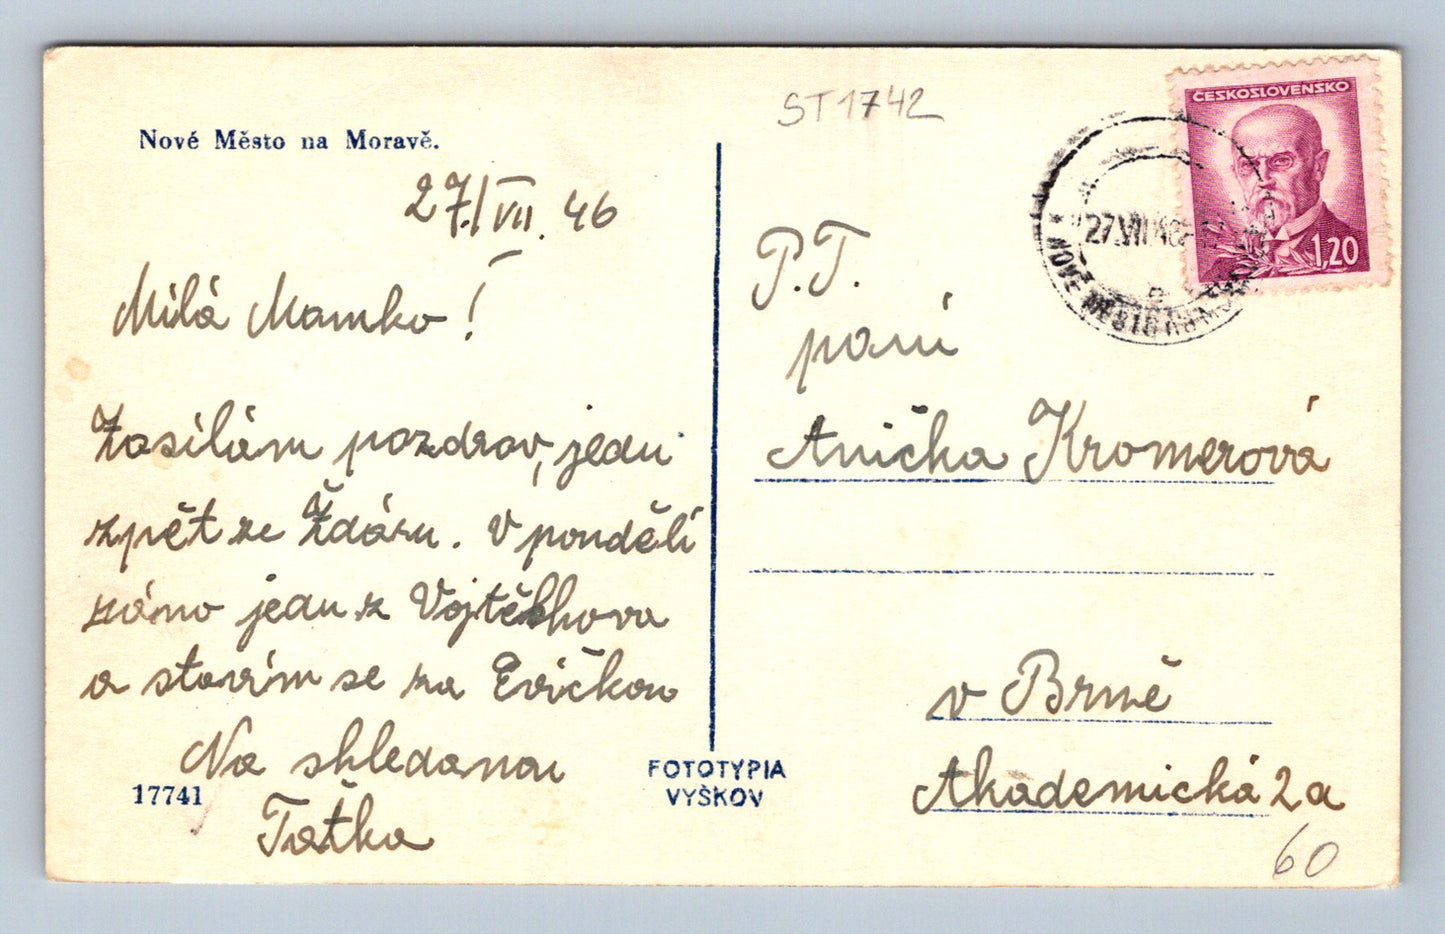 ST1742
Nové Město na Moravě.
27./VII. 46
Milá Mamko!
Zasílám pozdrav, jedu
zpět ze Žďáru. V pondělí
ráno jedu z Vojtěchova
a stavím se za Evičkou
Na shledanou
Taťka
17741
FOTOTYPIA
VYŠKOV
ČESKOSLOVENSKO
1,20
27.VII.46
NOVÉ MĚSTO NA MOR
P.T.
paní
Anička Kromerová
v Brně
Akademická 2a
60